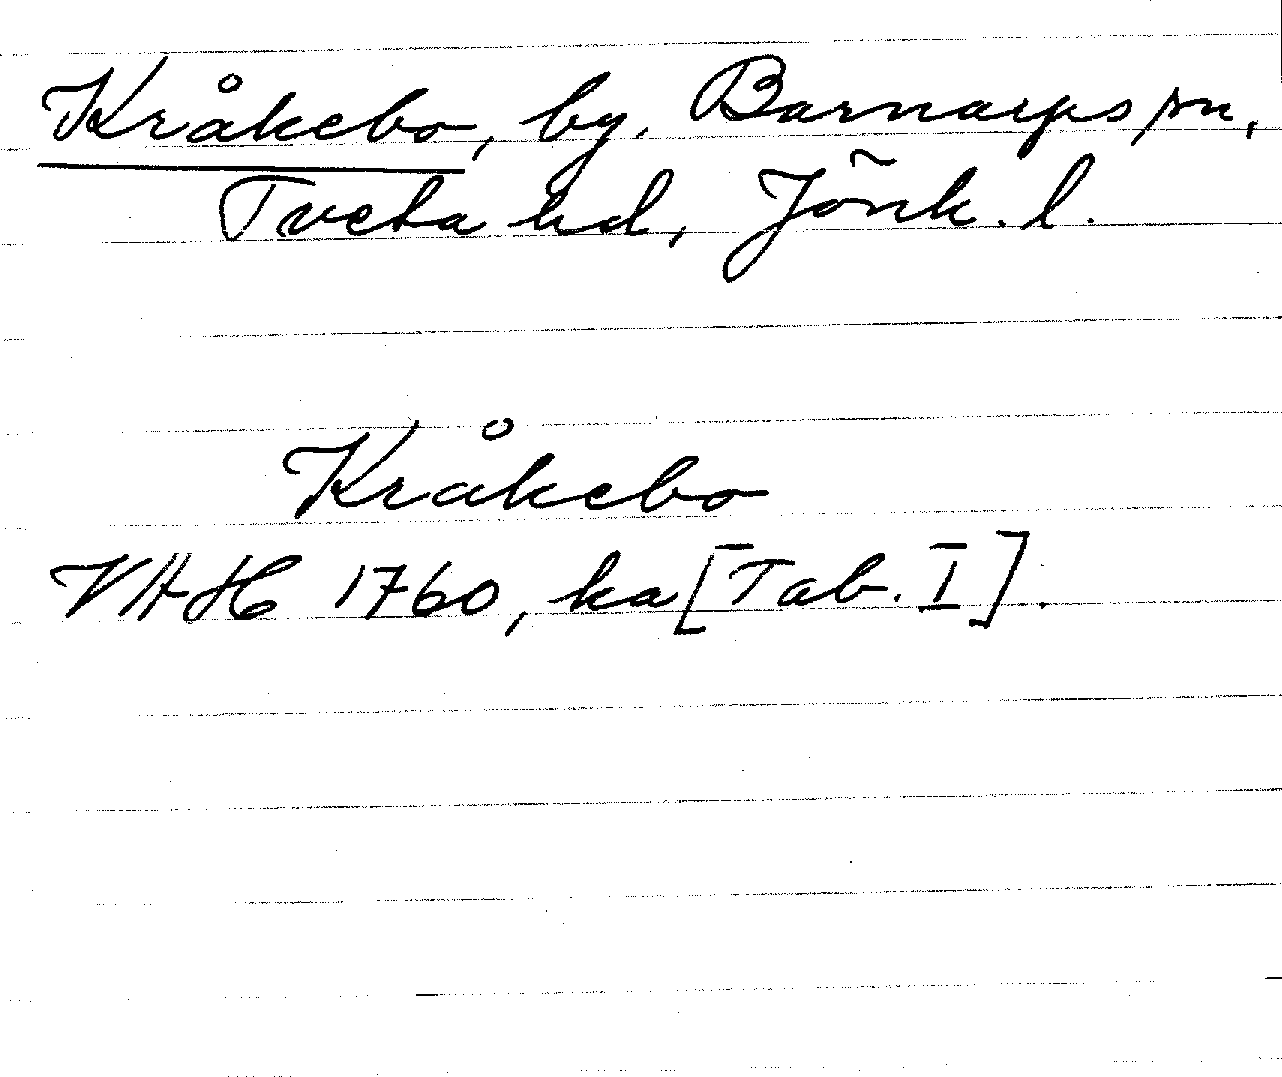 Kråkebo, by. Barnarps sn,
Tveta hd, Jönk. l.
Kråkebo
VAH 1760, ka [Tab. I].